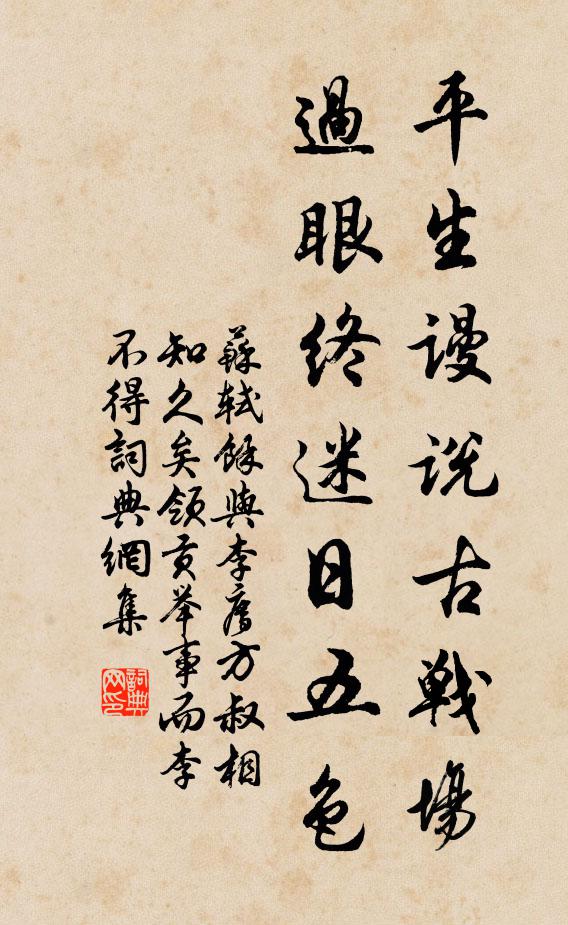 平生謾説古戰場
過眼終迷日五色
蘇軾餘與李廌方叔相
知久矣領貢舉事而李
不得詞典網集
詞典
网印